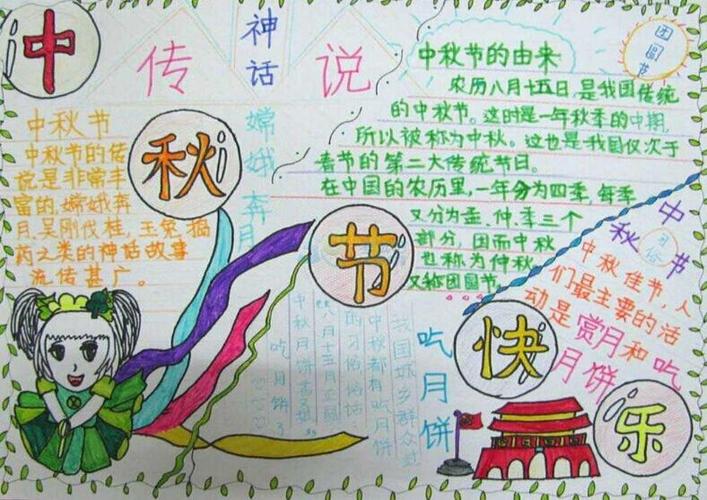 中
秋
节
快
乐
传
神话
说
团圆节
中秋节的由来
农历八月十五日,是我国传统
的中秋节。这时是一年秋季的中期,
所以被称为中秋。这也是我国仅次于
春节的第二大传统节日。
在中国的农历里,一年分为四季,每季
又分为孟、仲、季三个
部分,因而中秋
也称为仲秋
又称团圆节。
中秋节
中秋节的传
说是非常丰
富的,嫦娥奔
月,吴刚伐桂,玉兔捣
药之类的神话故事
流传甚广。
嫦娥奔月
中秋节
习俗
中秋佳节,人
们最主要的活
动是赏月和吃
月饼
吃月饼
我国城乡群众过
中秋都有吃月饼
的习俗,俗话:
八月十五月正圆
中秋月饼香
吃月饼